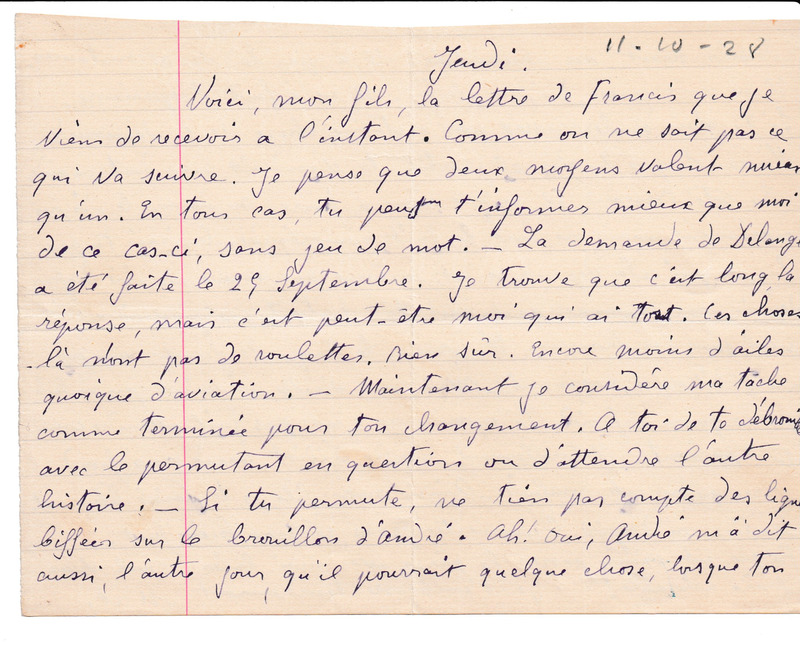 Jeudi. 11-10-28
Voici, mon fils, la lettre de Francis que je
viens de recevoir a l'instant. Comme on ne sait pas ce
qui va suivre. Je pense que deux moyens valent mieux
qu'un. En tous cas, tu peux t'informer mieux que moi
de ce cas-ci, sans jeu de mot. — La demande de Delange
a été faite le 25 Septembre. Je trouve que c'est long, la
réponse, mais c'est peut-être moi qui ai tort. Ces choses
-là n'ont pas de roulettes, bien sûr. Encore moins d'ailes
quoique d'aviation. — Maintenant je considére ma tache
comme terminée pour ton changement. A toi de te débrouiller
avec le permutant en question ou d'attendre l'autre
histoire. — Si tu permute, ne tien pas compte des ligne
biffées sur le brouillon d'André. Ah! oui, André m'a dit
aussi, l'autre jour, qu'il pourrait quelque chose, lorsque ton